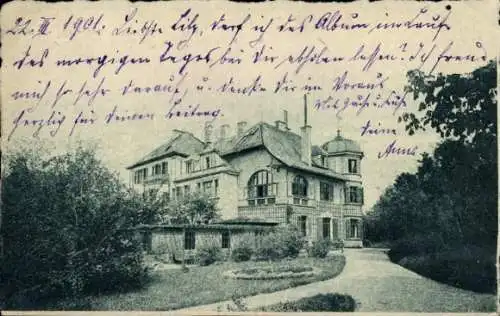 22. III 1901. Liebste Lilz, darf ich das Album im Lauf
des morgigen Tages bei Dir abholen lassen? Ich freu
mich so sehr darauf, u. danke Dir im Voraus
herzlich für deinen Beitrag. Mit Gruß u. Kuß
Deine
Anna